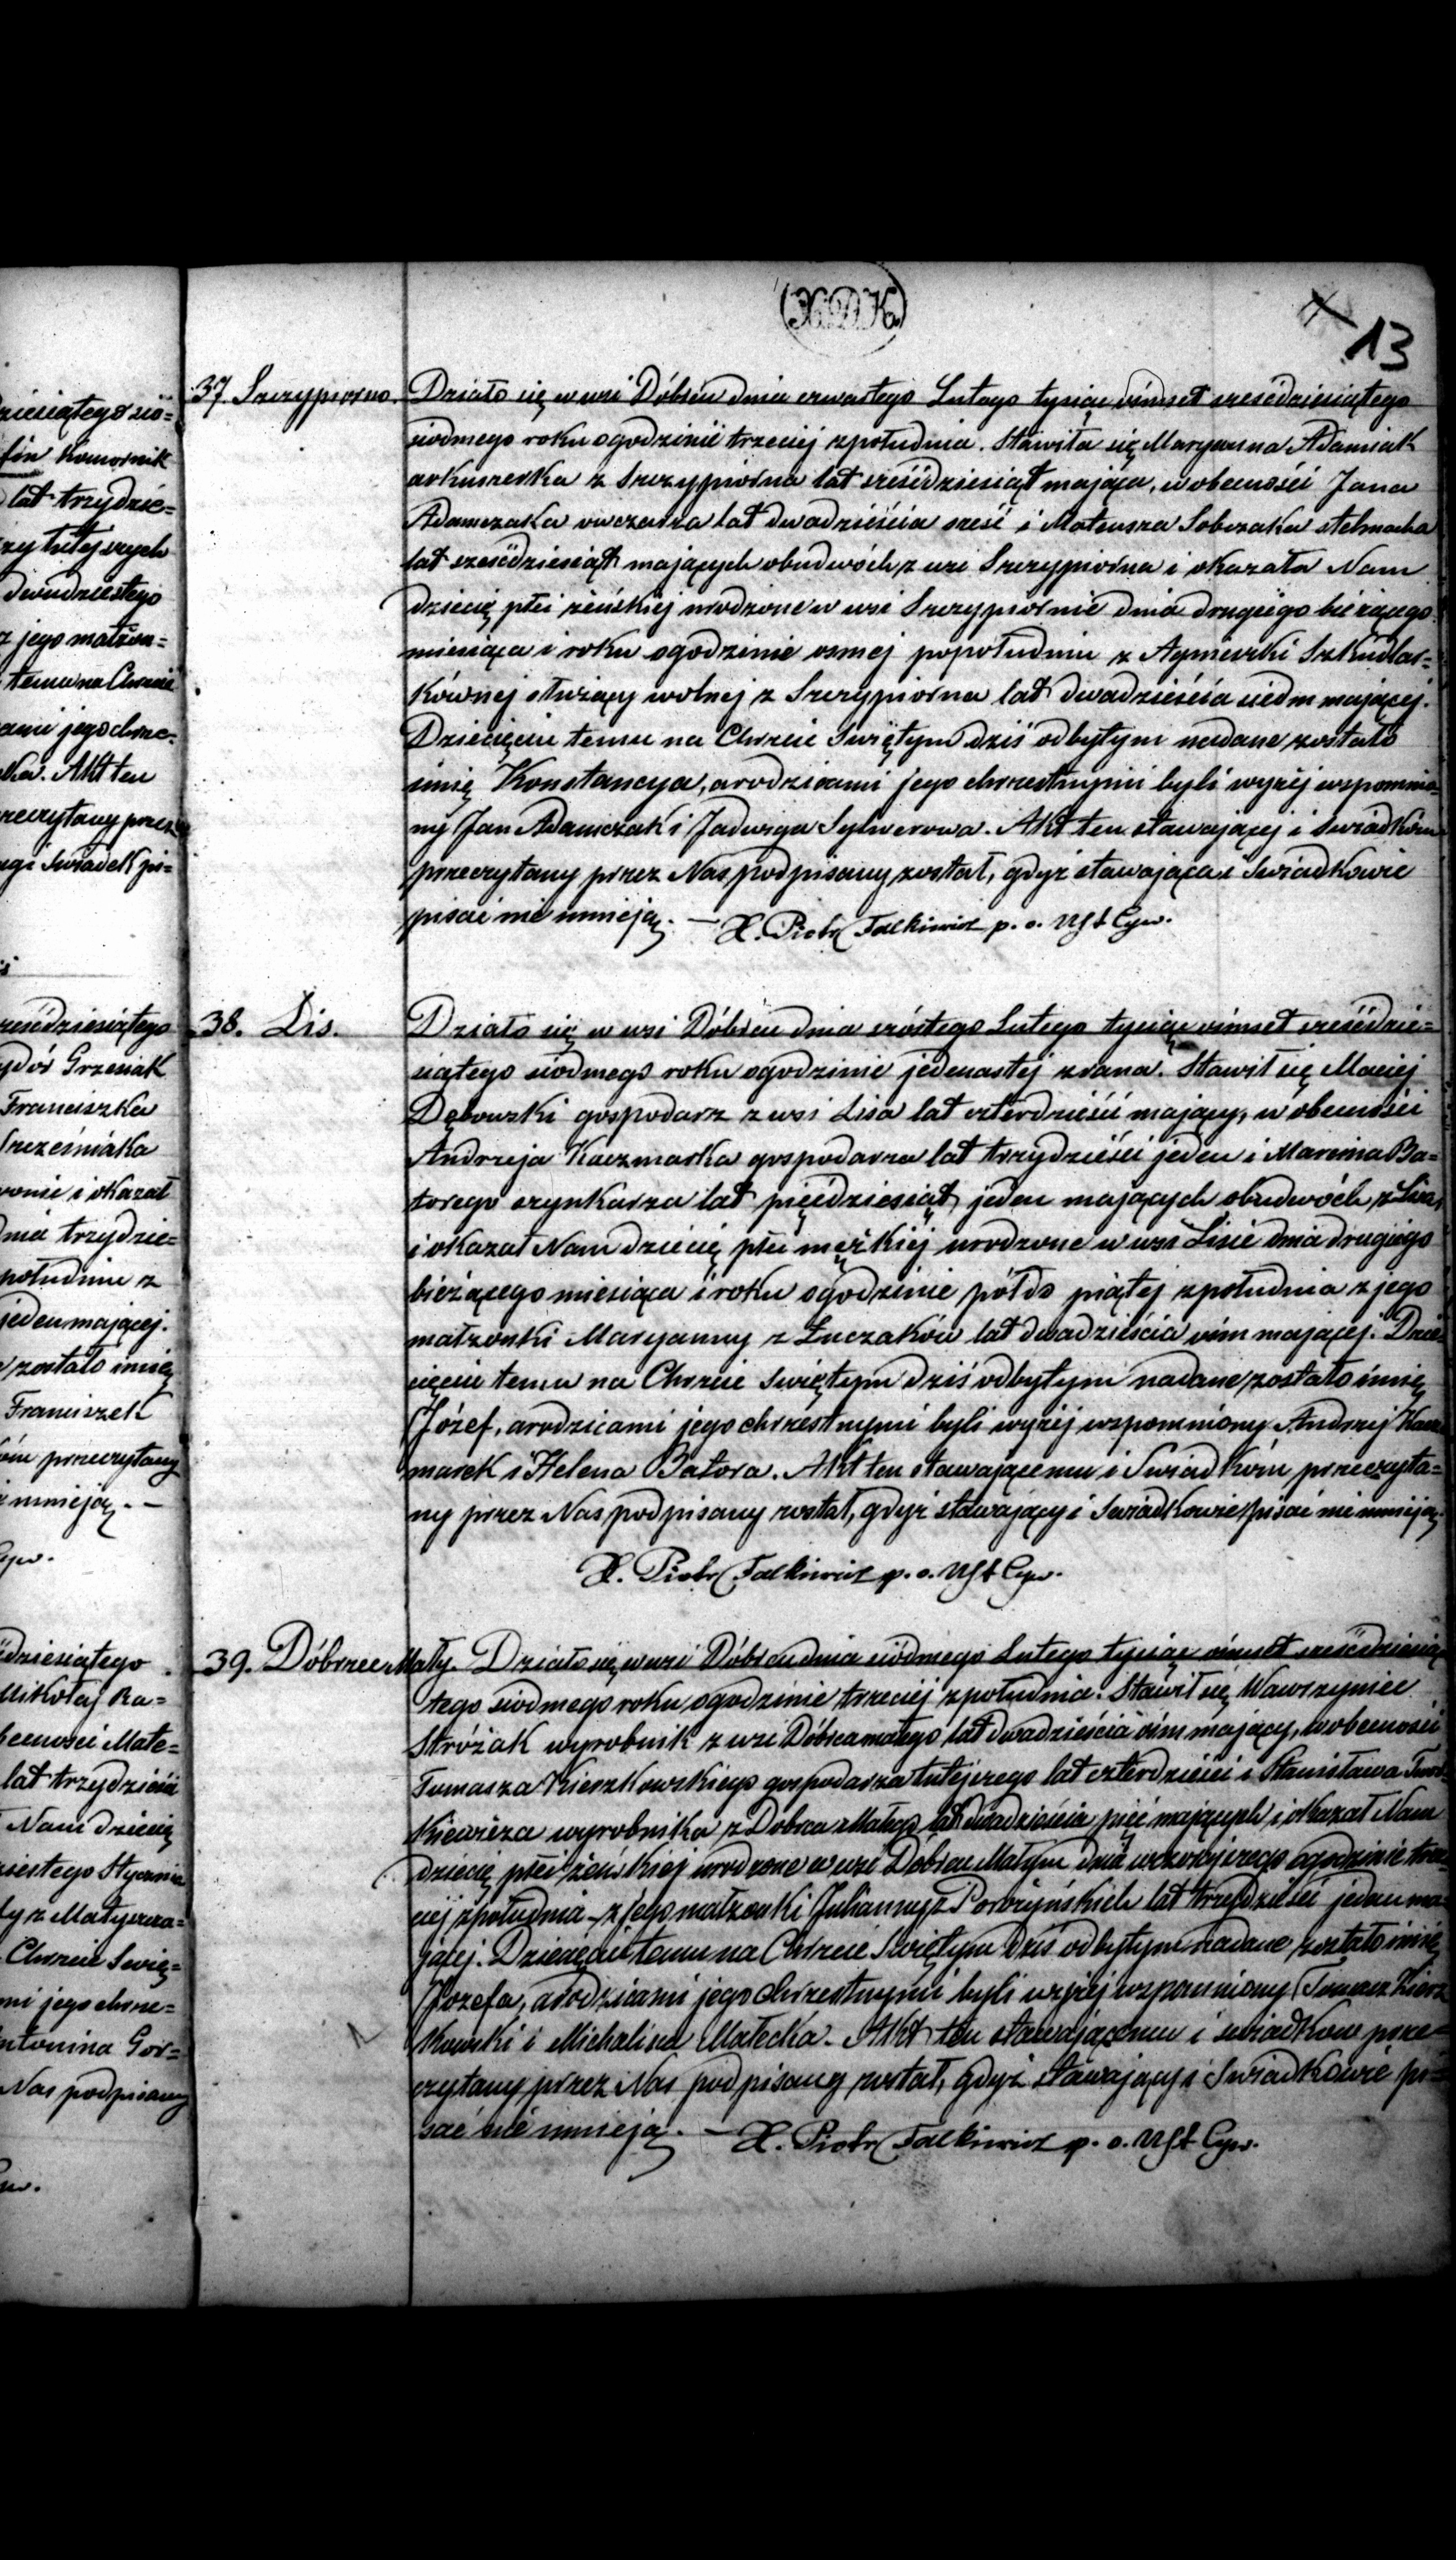 XDK
13
37. Szczypiorno. Działo się w wsi Dóbrcu dnia czwartego Lutego tysiąc ośmset sześćdziesiątego
siódmego roku o godzinie trzeciej z południa. Stawiła się Maryanna Adamiak
akuszerka z Szczypiorna lat sześćdziesiąt mająca, w obecności Jana
Adamczaka owczarza lat dwadzieścia sześć i Mateusza Sobczaka stelmacha
lat sześćdziesiąt mających obudwóch z wsi Szczypiorna i okazała Nam
dziecię płci żeńskiej urodzone w wsi Szczypiornie dnia drugiego bieżącego
miesiąca i roku o godzinie ósmej popołudniu z Agnieszki Szkudlar=
kównej służący wolnej z Szczypiorna lat dwadzieścia siedm mającej.
Dziecięciu temu na Chrzcie Świętym dziś odbytym nadane zostało
imię Konstancya, a rodzicami jego chrzestnymi byli wyżej wspomnio=
ny Jan Adamczak i Jadwiga Sylwerowa. Akt ten stawającej i świadkom
przeczytany przez Nas podpisany został, gdyż stawająca i Świadkowie
pisać nie umieją. — X. Piotr Falkiewicz p. o. USt Cyw.
38. Lis. Działo się w wsi Dóbrcu dnia szóstego Lutego tysiąc ośmset sześćdzie=
siątego siódmego roku o godzinie jedenastej z rana. Stawił się Maciej
Dębowski gospodarz z wsi Lisa lat czterdzieści mający, w obecności
Andrzeja Kaczmarka gospodarza lat trzydzieści jeden i Marcina Ba=
torego szynkarza lat pięćdziesiąt jeden mających obudwóch z Lisa,
i okazał Nam dziecię płci męzkiej urodzone w wsi Lisie dnia drugiego
bieżącego miesiąca i roku o godzinie pół do piątej z południa z jego
małżonki Maryanny z Łuczaków lat dwadzieścia ośm mającej. Dzie
cięciu temu na Chrzcie Świętym dziś odbytym nadane zostało imię
Józef, a rodzicami jego chrzestnymi byli wyżej wspomniony Andrzej Kacz
marek i Helena Batora. Akt ten stawającemu i Świadkom przeczyta=
ny przez Nas podpisany został, gdyż stawający i Świadkowie pisać nie umieją.
X. Piotr Falkiewicz p. o. USt Cyw.
39. Dóbrzec Mały. Działo się w wsi Dóbrcu dnia siódmego Lutego tysiąc ośmset sześćdziesią
tego siódmego roku o godzinie trzeciej z południa. Stawił się Wawrzyniec
Stróżak wyrobnik z wsi Dóbrca małego lat dwadzieścia ośm mający, w obecności
Tomasza Kieszkowskiego gospodarza tutejszego lat czterdzieści i Stanisława
kiewicza wyrobnika z Dobrca Małego lat dwadzieścia pięć mających i okazał Nam
dziecię płci żeńskiej urodzone w wsi Dóbrcu Małym dnia wczorajszego o godzinie trze
ciej z południa z jego małżonki Julianny z lat trzydzieści jeden ma
jącej. Dziecięciu temu na Chrzcie Świętym dziś odbytym nadane zostało imię
Józefa, a rodzicami jego chrzestnymi byli wyżej wspomniony Tomasz Kiesz
kowski i Michalina Małecka. Akt ten stawającemu i świadkom prze=
czytany przez Nas podpisany został, gdyż stawający i Świadkowie pi=
sać nie umieją. — X. Piotr Falkiewicz p. o. USt Cyw.